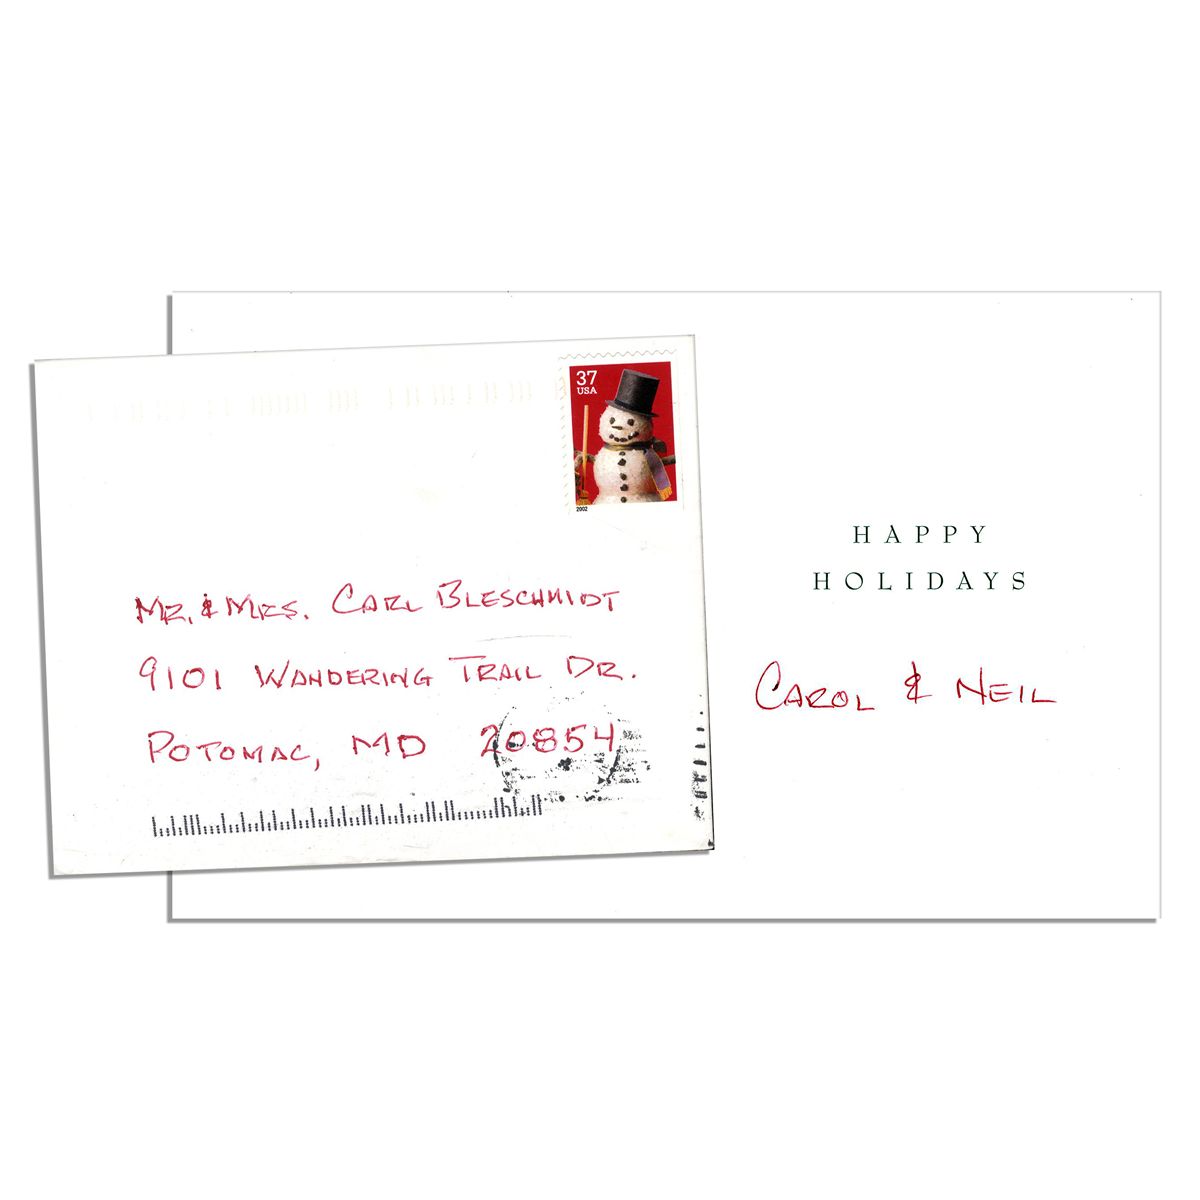 37
USA
2002
MR. & MRS. CARL BLESCHMIDT
9101 WANDERING TRAIL DR.
POTOMAC, MD 20854
HAPPY
HOLIDAYS
CAROL & NEIL